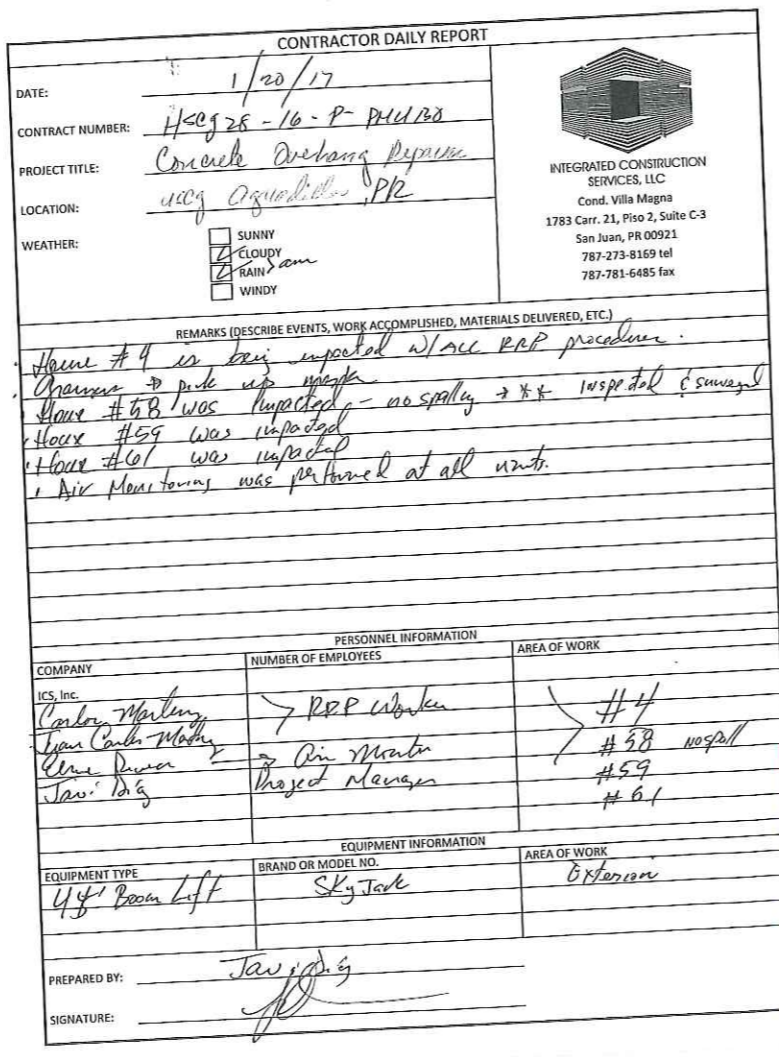 CONTRACTOR DAILY REPORT
DATE: 1/20/17
CONTRACT NUMBER: HSCG28-16-P-PMU130
PROJECT TITLE: Concrete Overhang Repairs
LOCATION: USCG Aguadilla, PR
WEATHER:
SUNNY
CLOUDY
RAIN > am
WINDY
INTEGRATED CONSTRUCTION
SERVICES, LLC
Cond. Villa Magna
1783 Carr. 21, Piso 2, Suite C-3
San Juan, PR 00921
787-273-8169 tel
787-781-6485 fax
REMARKS (DESCRIBE EVENTS, WORK ACCOMPLISHED, MATERIALS DELIVERED, ETC.)
· House #4 is being impacted w/ALL RRP procedures.
· pick up
· House #58 was impacted - no spalling → ** inspected & surveyed
· House #59 was impacted
· House #61 was impacted
· Air Monitoring was performed at all units.
PERSONNEL INFORMATION
COMPANY NUMBER OF EMPLOYEES AREA OF WORK
ICS, Inc.
Carlos RRP Worker #4
Juan Carlos #58 no spall
→ Air Monitor #59
Javi Díaz Project Manager #61
EQUIPMENT INFORMATION
EQUIPMENT TYPE BRAND OR MODEL NO. AREA OF WORK
Boom Lift SkyJack Exterior
PREPARED BY: Javi Díaz
SIGNATURE: